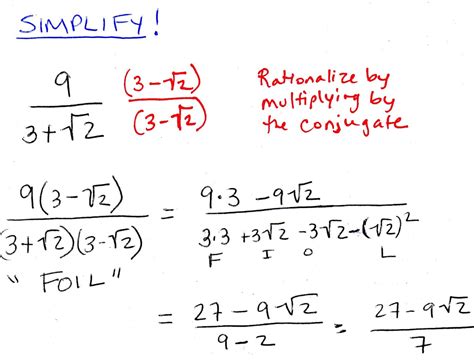 SIMPLIFY!
9/(3+√2) (3-√2)/(3-√2)
Rationalize by
multiplying by
the conjugate
9(3-√2)/((3+√2)(3-√2)) = (9·3 -9√2)/(3·3 +3√2 -3√2 -(√2)²)
F I O L
"FOIL"
= (27-9√2)/(9-2) = (27-9√2)/7